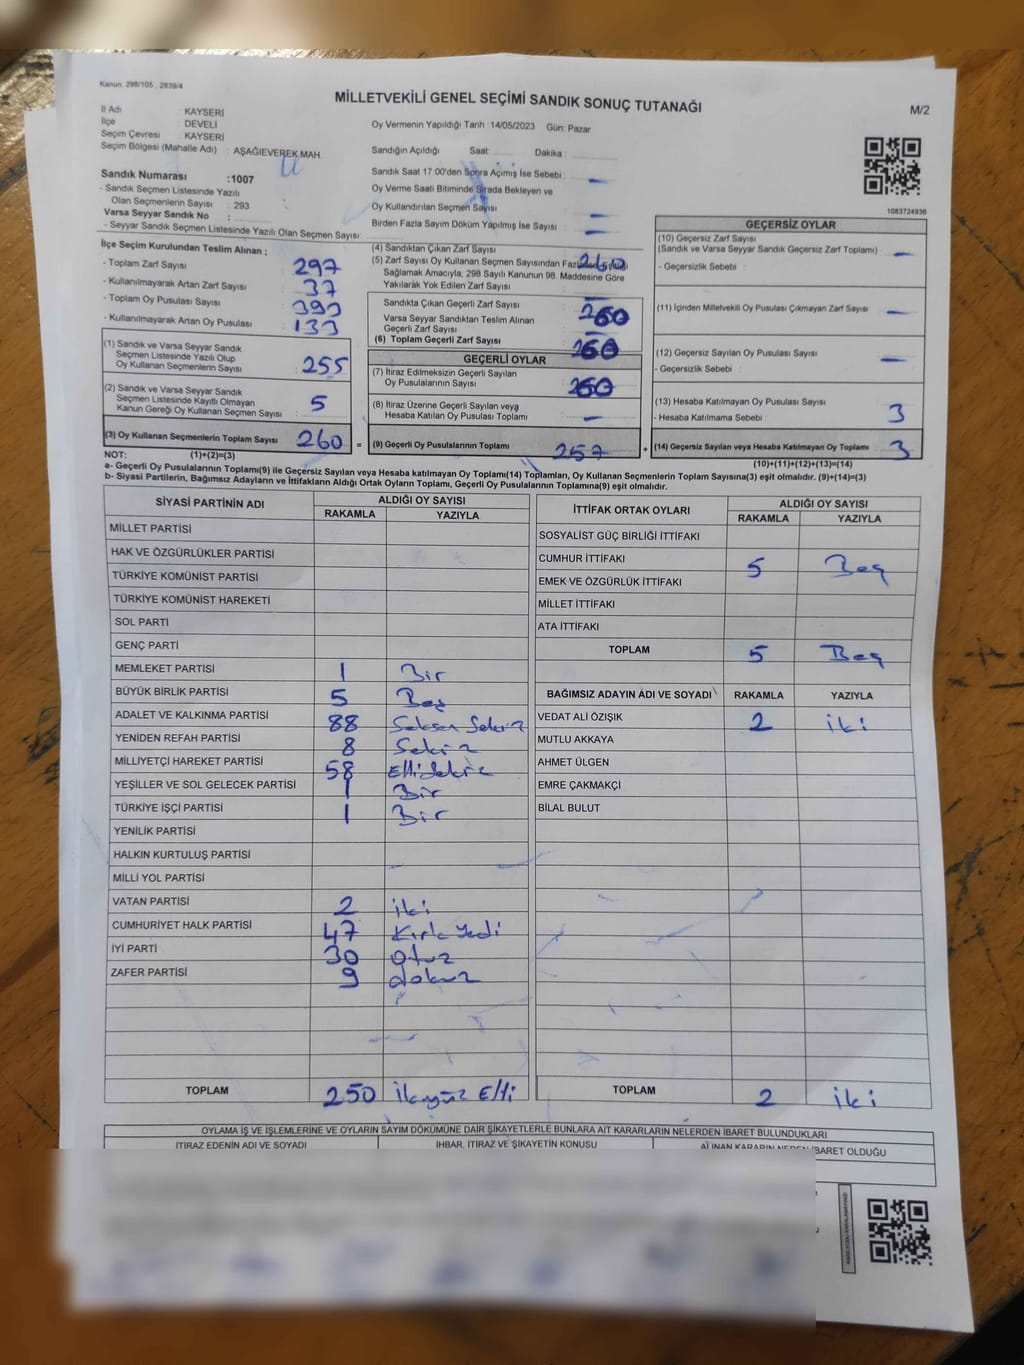 Kanun: 298/105 , 2839/4
MİLLETVEKİLİ GENEL SEÇİMİ SANDIK SONUÇ TUTANAĞI
M/2
İl Adı : KAYSERİ
İlçe : DEVELİ
Seçim Çevresi : KAYSERİ
Seçim Bölgesi (Mahalle Adı) : AŞAĞIEVEREK MAH
Sandık Numarası :1007
- Sandık Seçmen Listesinde Yazılı
Olan Seçmenlerin Sayısı : 293
Varsa Seyyar Sandık No :
- Seyyar Sandık Seçmen Listesinde Yazılı Olan Seçmen Sayısı:
Oy Vermenin Yapıldığı Tarih :14/05/2023 Gün: Pazar
Sandığın Açıldığı Saat: Dakika:
Sandık Saat 17.00'den Sonra Açımış İse Sebebi : -
Oy Verme Saati Bitiminde Sırada Bekleyen ve
Oy Kullandırılan Seçmen Sayısı : -
Birden Fazla Sayım Döküm Yapılmış İse Sayısı : -
1083724936
İlçe Seçim Kurulundan Teslim Alınan ;
- Toplam Zarf Sayısı : 297
- Kullanılmayarak Artan Zarf Sayısı : 37
- Toplam Oy Pusulası Sayısı : 393
- Kullanılmayarak Artan Oy Pusulası : 133
(1) Sandık ve Varsa Seyyar Sandık
Seçmen Listesinde Yazılı Olup
Oy Kullanan Seçmenlerin Sayısı : 255
(2) Sandık ve Varsa Seyyar Sandık
Seçmen Listesinde Kayıtlı Olmayan
Kanun Gereği Oy Kullanan Seçmen Sayısı : 5
(3) Oy Kullanan Seçmenlerin Toplam Sayısı : 260 =
(4) Sandıktan Çıkan Zarf Sayısı : 260
(5) Zarf Sayısı Oy Kullanan Seçmen Sayısından
Sağlamak Amacıyla, 298 Sayılı Kanunun 98. Maddesine Göre
Yakılarak Yok Edilen Zarf Sayısı :
Sandıkta Çıkan Geçerli Zarf Sayısı : 260
Varsa Seyyar Sandıktan Teslim Alınan
Geçerli Zarf Sayısı :
(6) Toplam Geçerli Zarf Sayısı : 260
GEÇERLİ OYLAR
(7) İtiraz Edilmeksizin Geçerli Sayılan
Oy Pusulalarının Sayısı : 260
(8) İtiraz Üzerine Geçerli Sayılan veya
Hesaba Katılan Oy Pusulası Toplamı : -
(9) Geçerli Oy Pusulalarının Toplamı : 257 +
GEÇERSİZ OYLAR
(10) Geçersiz Zarf Sayısı
(Sandık ve Varsa Seyyar Sandık Geçersiz Zarf Toplamı) : -
- Geçersizlik Sebebi :
(11) İçinden Milletvekili Oy Pusulası Çıkmayan Zarf Sayısı : -
(12) Geçersiz Sayılan Oy Pusulası Sayısı : -
- Geçersizlik Sebebi :
(13) Hesaba Katılmayan Oy Pusulası Sayısı : 3
- Hesaba Katılmama Sebebi :
(14) Geçersiz Sayılan veya Hesaba Katılmayan Oy Toplamı : 3
NOT: (1)+(2)=(3)
(10)+(11)+(12)+(13)=(14)
a- Geçerli Oy Pusulalarının Toplamı(9) ile Geçersiz Sayılan veya Hesaba katılmayan Oy Toplamı(14) Toplamları, Oy Kullanan Seçmenlerin Toplam Sayısına(3) eşit olmalıdır. (9)+(14)=(3)
b- Siyasi Partilerin, Bağımsız Adayların ve İttifakların Aldığı Ortak Oyların Toplamı, Geçerli Oy Pusulalarının Toplamına(9) eşit olmalıdır.
SİYASİ PARTİNİN ADI ALDIĞI OY SAYISI
RAKAMLA YAZIYLA
MİLLET PARTİSİ
HAK VE ÖZGÜRLÜKLER PARTİSİ
TÜRKİYE KOMÜNİST PARTİSİ
TÜRKİYE KOMÜNİST HAREKETİ
SOL PARTİ
GENÇ PARTİ
MEMLEKET PARTİSİ 1 Bir
BÜYÜK BİRLİK PARTİSİ 5 Beş
ADALET VE KALKINMA PARTİSİ 88 Seksen Sekiz
YENİDEN REFAH PARTİSİ 8 Sekiz
MİLLİYETÇİ HAREKET PARTİSİ 58 Ellisekiz
YEŞİLLER VE SOL GELECEK PARTİSİ 1 Bir
TÜRKİYE İŞÇİ PARTİSİ 1 Bir
YENİLİK PARTİSİ
HALKIN KURTULUŞ PARTİSİ
MİLLİ YOL PARTİSİ
VATAN PARTİSİ 2 iki
CUMHURİYET HALK PARTİSİ 47 Kırk Yedi
İYİ PARTİ 30 Otuz
ZAFER PARTİSİ 9 dokuz
TOPLAM 250 ikiyüz Elli
İTTİFAK ORTAK OYLARI ALDIĞI OY SAYISI
RAKAMLA YAZIYLA
SOSYALİST GÜÇ BİRLİĞİ İTTİFAKI
CUMHUR İTTİFAKI 5 Beş
EMEK VE ÖZGÜRLÜK İTTİFAKI
MİLLET İTTİFAKI
ATA İTTİFAKI
TOPLAM 5 Beş
BAĞIMSIZ ADAYIN ADI VE SOYADI RAKAMLA YAZIYLA
VEDAT ALİ ÖZIŞIK 2 iki
MUTLU AKKAYA
AHMET ÜLGEN
EMRE ÇAKMAKÇİ
BİLAL BULUT
TOPLAM 2 iki
OYLAMA İŞ VE İŞLEMLERİNE VE OYLARIN SAYIM DÖKÜMÜNE DAİR ŞİKAYETLERLE BUNLARA AİT KARARLARIN NELERDEN İBARET BULUNDUKLARI
İTİRAZ EDENİN ADI VE SOYADI İHBAR, İTİRAZ VE ŞİKAYETİN KONUSU ALINAN KARARIN NEDEN İBARET OLDUĞU